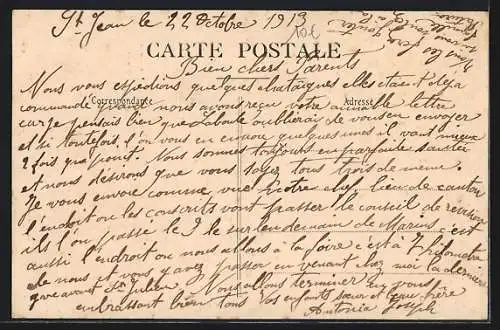 St Jean le 22 Octobre 1913
10 €
CARTE POSTALE
Bien chers Parents
Nous vous expédions quelques chataignes elles etait deja
Correspondance
Adresse
commande quand nous avons reçu votre aimable lettre
car je pensais bien que Laboule oublierai de vous en envoyer
et si toutefois l'on vous en envoie quelques unes il vaut mieux
2 fois que point. Nous sommes toujours en parfaite santée
et nous désirons que vous soyez tous trois de meme.
Je vous envoie comme vue notre chef lieu de canton
l'endroit ou les conscrits vont passer le conseil de revision
ils l'on passe le 3 le surlendemain de Marius c'est
aussi l'endroit ou nous allons à la foire c'est à 7 kilometre
de nous et vous y avez passer en venant chez moi la derniere
gare avant St Julien. Nous allons terminer en vous
embrassant bien tous Vos enfants sœur et beau frère
Antonia Joseph